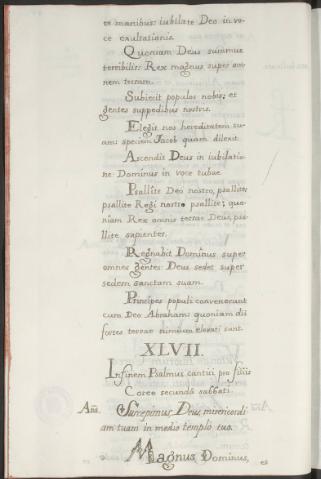 es manibus: iubilate Deo in vo
ce exultationis.
Quoniam Deus summus
terribilis: Rex magnus super om
nem terram.
Subiecit populos nobis; et
gentes sub pedibus nostris.
Elegit nos hereditatem su
am: speciem Jacob quam dilexit.
Ascendit Deus in iubilatio
ne: Dominus in voce tubae.
Psallite Deo nostro, psallite;
psallite Regi nostro psallite; quo
niam Rex omnis terrae Deus, psa
llite sapienter.
Regnabit Dominus super
omnes gentes: Deus sedet super
sedem sanctam suam.
Principes populi convenerunt
cum Deo Abraham: quoniam dii
fortes terrae nimium elevati sunt.
XLVII.
In finem Psalmus cantici pro filiis
Coree secunda sabbati.
Aña. Suscepimus Deus, misericordi
am tuam in medio templo tuo.
Magnus Dominus,
es